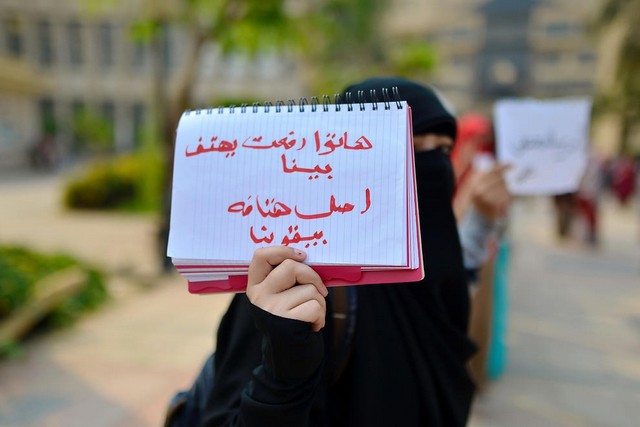 هاتوا رفعت يهتف
بينا
اصل هتافه
بيقوينا